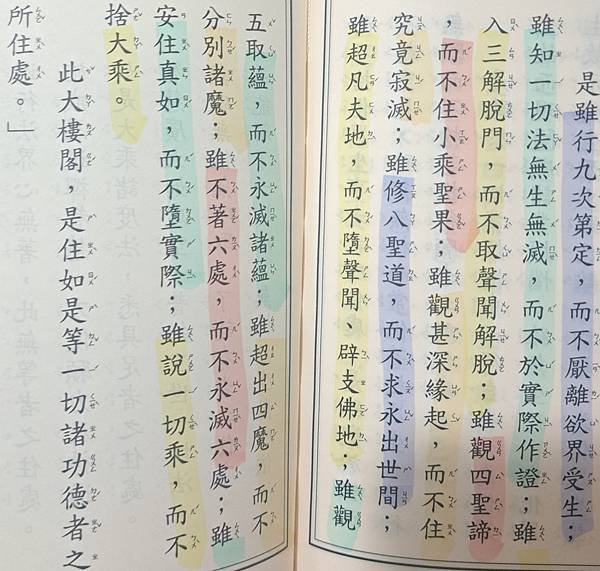 是雖行九次第定，而不厭離欲界受生；
雖知一切法無生無滅，而不於實際作證；雖
入三解脫門，而不取聲聞解脫；雖觀四聖諦
，而不住小乘聖果；雖觀甚深緣起，而不住
究竟寂滅；雖修八聖道，而不求永出世間；
雖超凡夫地，而不墮聲聞、辟支佛地；雖觀
五取蘊，而不永滅諸蘊；雖超出四魔，而不
分別諸魔；雖不著六處，而不永滅六處；雖
安住真如，而不墮實際；雖說一切乘，而不
捨大乘。
此大樓閣，是住如是等一切諸功德者之
所住處。」